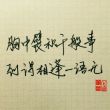 胸中装积千般事
到得相逢一语无